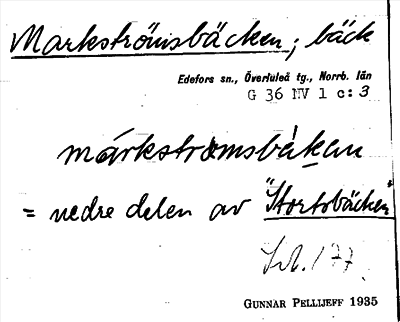 Markströmsbäcken; bäck
Edefors sn., Överluleå tg., Norrb. län
G 36 NV 1 c:3
márkstromsbäkan
= nedre delen av "Stortsbäcken"
177
GUNNAR PELLIJEFF 1935